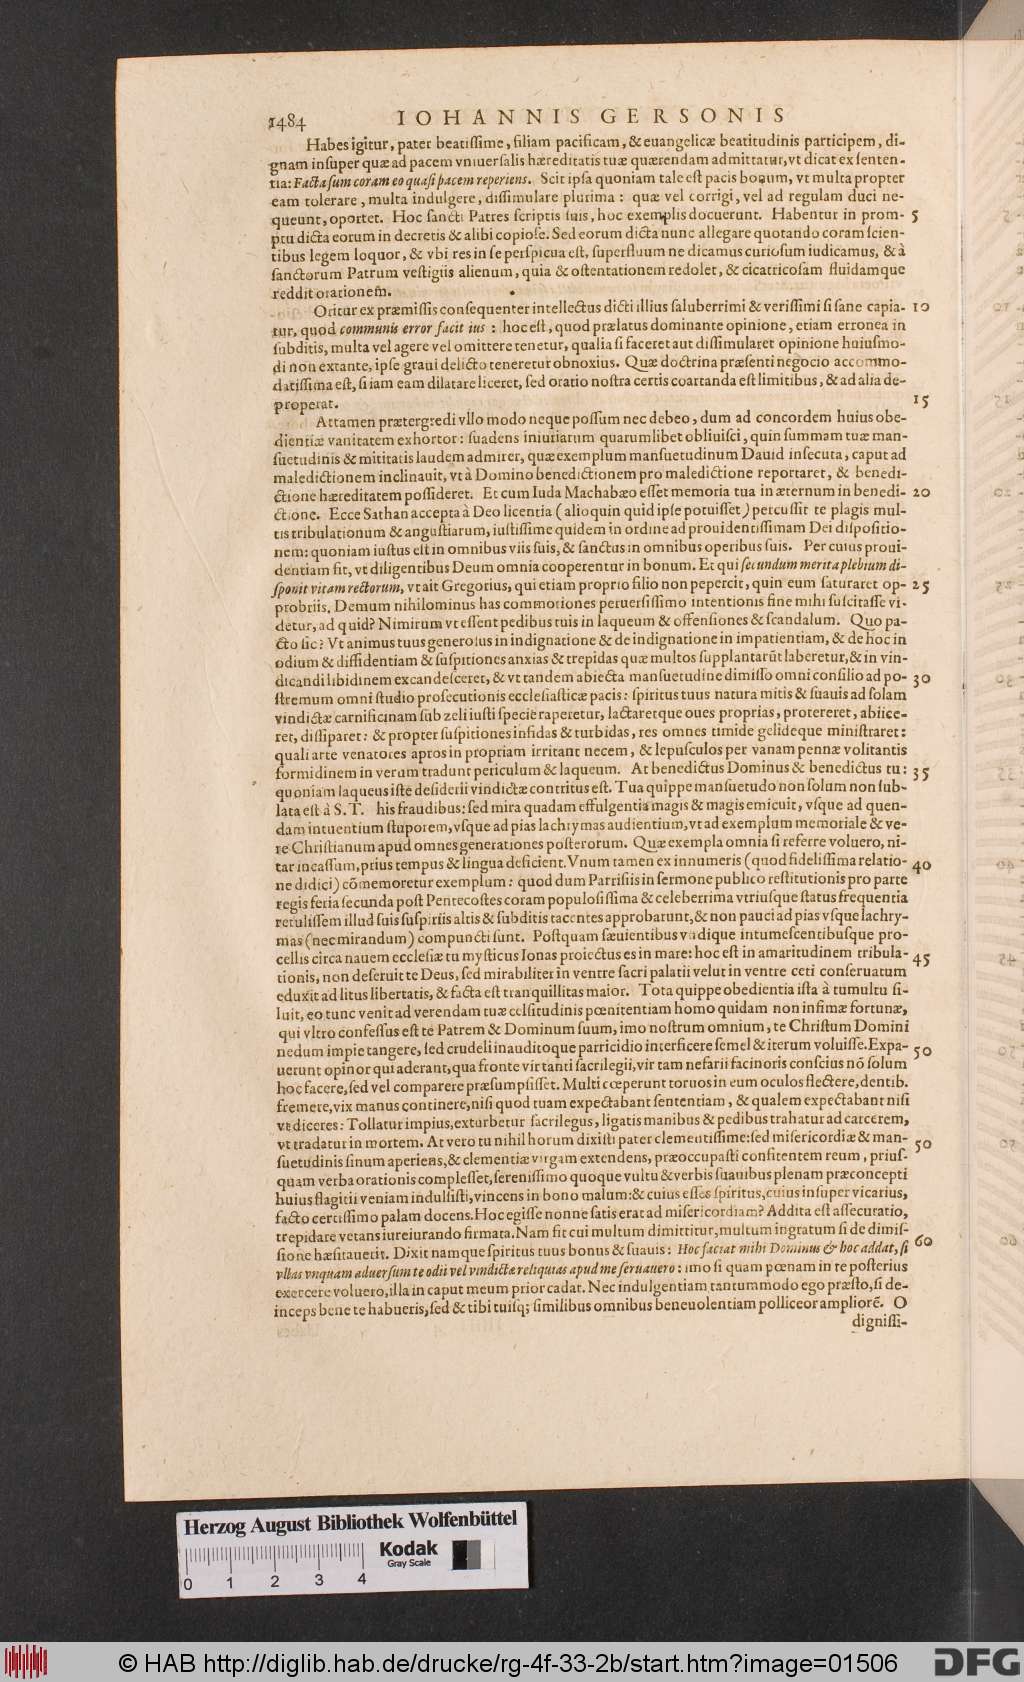 1484 IOHANNIS GERSONIS
Habes igitur, pater beatissime, filiam pacificam, & euangelicæ beatitudinis participem, di-
gnam insuper quæ ad pacem vniuersalis hæreditatis tuæ quærendam admittatur, vt dicat ex senten-
tia: Facta sum coram eo quasi pacem reperiens. Scit ipsa quoniam tale est pacis bonum, vt multa propter
eam tolerare, multa indulgere, dissimulare plurima: quæ vel corrigi, vel ad regulam duci ne-
queunt, oportet. Hoc sancti Patres scriptis suis, hoc exemplis docuerunt. Habentur in prom- 5
ptu dicta eorum in decretis & alibi copiose. Sed eorum dicta nunc allegare quotando coram scien-
tibus legem loquor, & vbi res in se perspicua est, superfluum ne dicamus curiosum iudicamus, & à
sanctorum Patrum vestigiis alienum, quia & ostentationem redolet, & cicatricosam fluidamque
reddit orationem.
Oritur ex præmissis consequenter intellectus dicti illius saluberrimi & verissimi si sane capia- 10
tur, quod communis error facit ius: hoc est, quod prælatus dominante opinione, etiam erronea in
subditis, multa vel agere vel omittere tenetur, qualia si faceret aut dissimularet opinione huiusmo-
di non extante, ipse graui delicto teneretur obnoxius. Quæ doctrina præsenti negocio accommo-
datissima est, si iam eam dilatare liceret, sed oratio nostra certis coartanda est limitibus, & ad alia de-
properat. 15
Attamen prætergredi vllo modo neque possum nec debeo, dum ad concordem huius obe-
dientiæ vanitatem exhortor: suadens iniuriarum quarumlibet obliuisci, quin summam tuæ man-
suetudinis & mititatis laudem admirer, quæ exemplum mansuetudinum Dauid insecuta, caput ad
maledictionem inclinauit, vt à Domino benedictionem pro maledictione reportaret, & benedi-
ctione hæreditatem possideret. Et cum Iuda Machabæo esset memoria tua in æternum in benedi- 20
ctione. Ecce Sathan accepta à Deo licentia (alioquin quid ipse potuisset) percussit te plagis mul-
tis tribulationum & angustiarum, iustissime quidem in ordine ad prouidentissimam Dei dispositio-
nem: quoniam iustus est in omnibus viis suis, & sanctus in omnibus operibus suis. Per cuius proui-
dentiam fit, vt diligentibus Deum omnia cooperentur in bonum. Et qui secundum merita plebium di-
sponit vitam rectorum, vt ait Gregorius, qui etiam proprio filio non pepercit, quin eum saturaret op- 25
probriis, Demum nihilominus has commotiones peruersissimo intentionis fine mihi suscitasse vi-
detur, ad quid? Nimirum vt essent pedibus tuis in laqueum & offensiones & scandalum. Quo pa-
cto sic? Vt animus tuus generosus in indignatione & de indignatione in impatientiam, & de hoc in
odium & diffidentiam & suspitiones anxias & trepidas quæ multos supplantarūt laberetur, & in vin-
dicandi libidinem excandesceret, & vt tandem abiecta mansuetudine dimisso omni consilio ad po- 30
stremum omni studio prosecutionis ecclesiasticæ pacis: spiritus tuus natura mitis & suauis ad solam
vindictæ carnificinam sub zeli iusti specie raperetur, lactaretque oues proprias, protereret, abiice-
ret, dissiparet: & propter suspitiones infidas & turbidas, res omnes timide gelideque ministraret:
quali arte venatores apros in propriam irritant necem, & lepusculos per vanam pennæ volitantis
formidinem in verum tradunt periculum & laqueum. At benedictus Dominus & benedictus tu: 35
quoniam laqueus iste desiderii vindictæ contritus est. Tua quippe mansuetudo non solum non sub-
lata est à S. T. his fraudibus: sed mira quadam effulgentia magis & magis emicuit, vsque ad quen-
dam intuentium stuporem, vsque ad pias lachrymas audientium, vt ad exemplum memoriale & ve-
re Christianum apud omnes generationes posterorum. Quæ exempla omnia si referre voluero, ni-
tar incassum, prius tempus & lingua deficient. Vnum tamen ex innumeris (quod fidelissima relatio- 40
ne didici) cōmemoretur exemplum: quod dum Parrisiis in sermone publico restitutionis pro parte
regis feria secunda post Pentecostes coram populosissima & celeberrima vtriusque status frequentia
retulissem illud suis suspiriis altis & subditis tacentes approbarunt, & non pauci ad pias vsque lachry-
mas (nec mirandum) compuncti sunt. Postquam sæuientibus vndique intumescentibusque pro-
cellis circa nauem ecclesiæ tu mysticus Ionas proiectus es in mare: hoc est in amaritudinem tribula- 45
tionis, non deseruit te Deus, sed mirabiliter in ventre sacri palatii velut in ventre ceti conseruatum
eduxit ad litus libertatis, & facta est tranquillitas maior. Tota quippe obedientia ista à tumultu si-
luit, eo tunc venit ad verendam tuæ celsitudinis pœnitentiam homo quidam non infimæ fortunæ,
qui vltro confessus est te Patrem & Dominum suum, imo nostrum omnium, te Christum Domini
nedum impie tangere, sed crudeli inauditoque parricidio interficere semel & iterum voluisse. Expa- 50
uerunt opinor qui aderant, qua fronte vir tanti sacrilegii, vir tam nefarii facinoris conscius nō solum
hoc facere, sed vel comparere præsumpsisset. Multi cœperunt toruos in eum oculos flectere, dentib.
fremere, vix manus continere, nisi quod tuam expectabant sententiam, & qualem expectabant nisi
vt diceres: Tollatur impius, exturbetur sacrilegus, ligatis manibus & pedibus trahatur ad carcerem,
vt tradatur in mortem. At vero tu nihil horum dixisti pater clementissime: sed misericordiæ & man- 50
suetudinis sinum aperiens, & clementiæ virgam extendens, præoccupasti confitentem reum, prius-
quam verba orationis complesset, serenissimo quoque vultu & verbis suauibus plenam præconcepti
huius flagitii veniam indulsisti, vincens in bono malum: & cuius esses spiritus, cuius insuper vicarius,
facto certissimo palam docens. Hoc egisse nonne satis erat ad misericordiam? Addita est assecuratio,
trepidare vetans iureiurando firmata. Nam fit cui multum dimittitur, multum ingratum si de dimis-
sione hæsitauerit. Dixit namque spiritus tuus bonus & suauis: Hoc faciat mihi Dominus & hoc addat, si 60
vllas vnquam aduersum te odii vel vindictæ reliquias apud me seruauero: imo si quam pœnam in te posterius
exercere voluero, illa in caput meum prior cadat. Nec indulgentiam tantummodo ego præsto, si de-
inceps bene te habueris, sed & tibi tuisq; similibus omnibus beneuolentiam polliceor ampliorē. O
dignissi-
Herzog August Bibliothek Wolfenbüttel
Kodak
Gray Scale
0 1 2 3 4
© HAB http://diglib.hab.de/drucke/rg-4f-33-2b/start.htm?image=01506
DFG